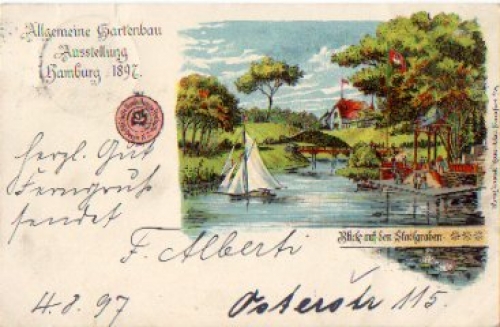 Allgemeine Gartenbau
Ausstellung
Hamburg 1897.
herzl. Gut
Ferngruß
sendet
F. Alberti
Blick auf den Stadtgraben
4.8.97
Osterstr 115.